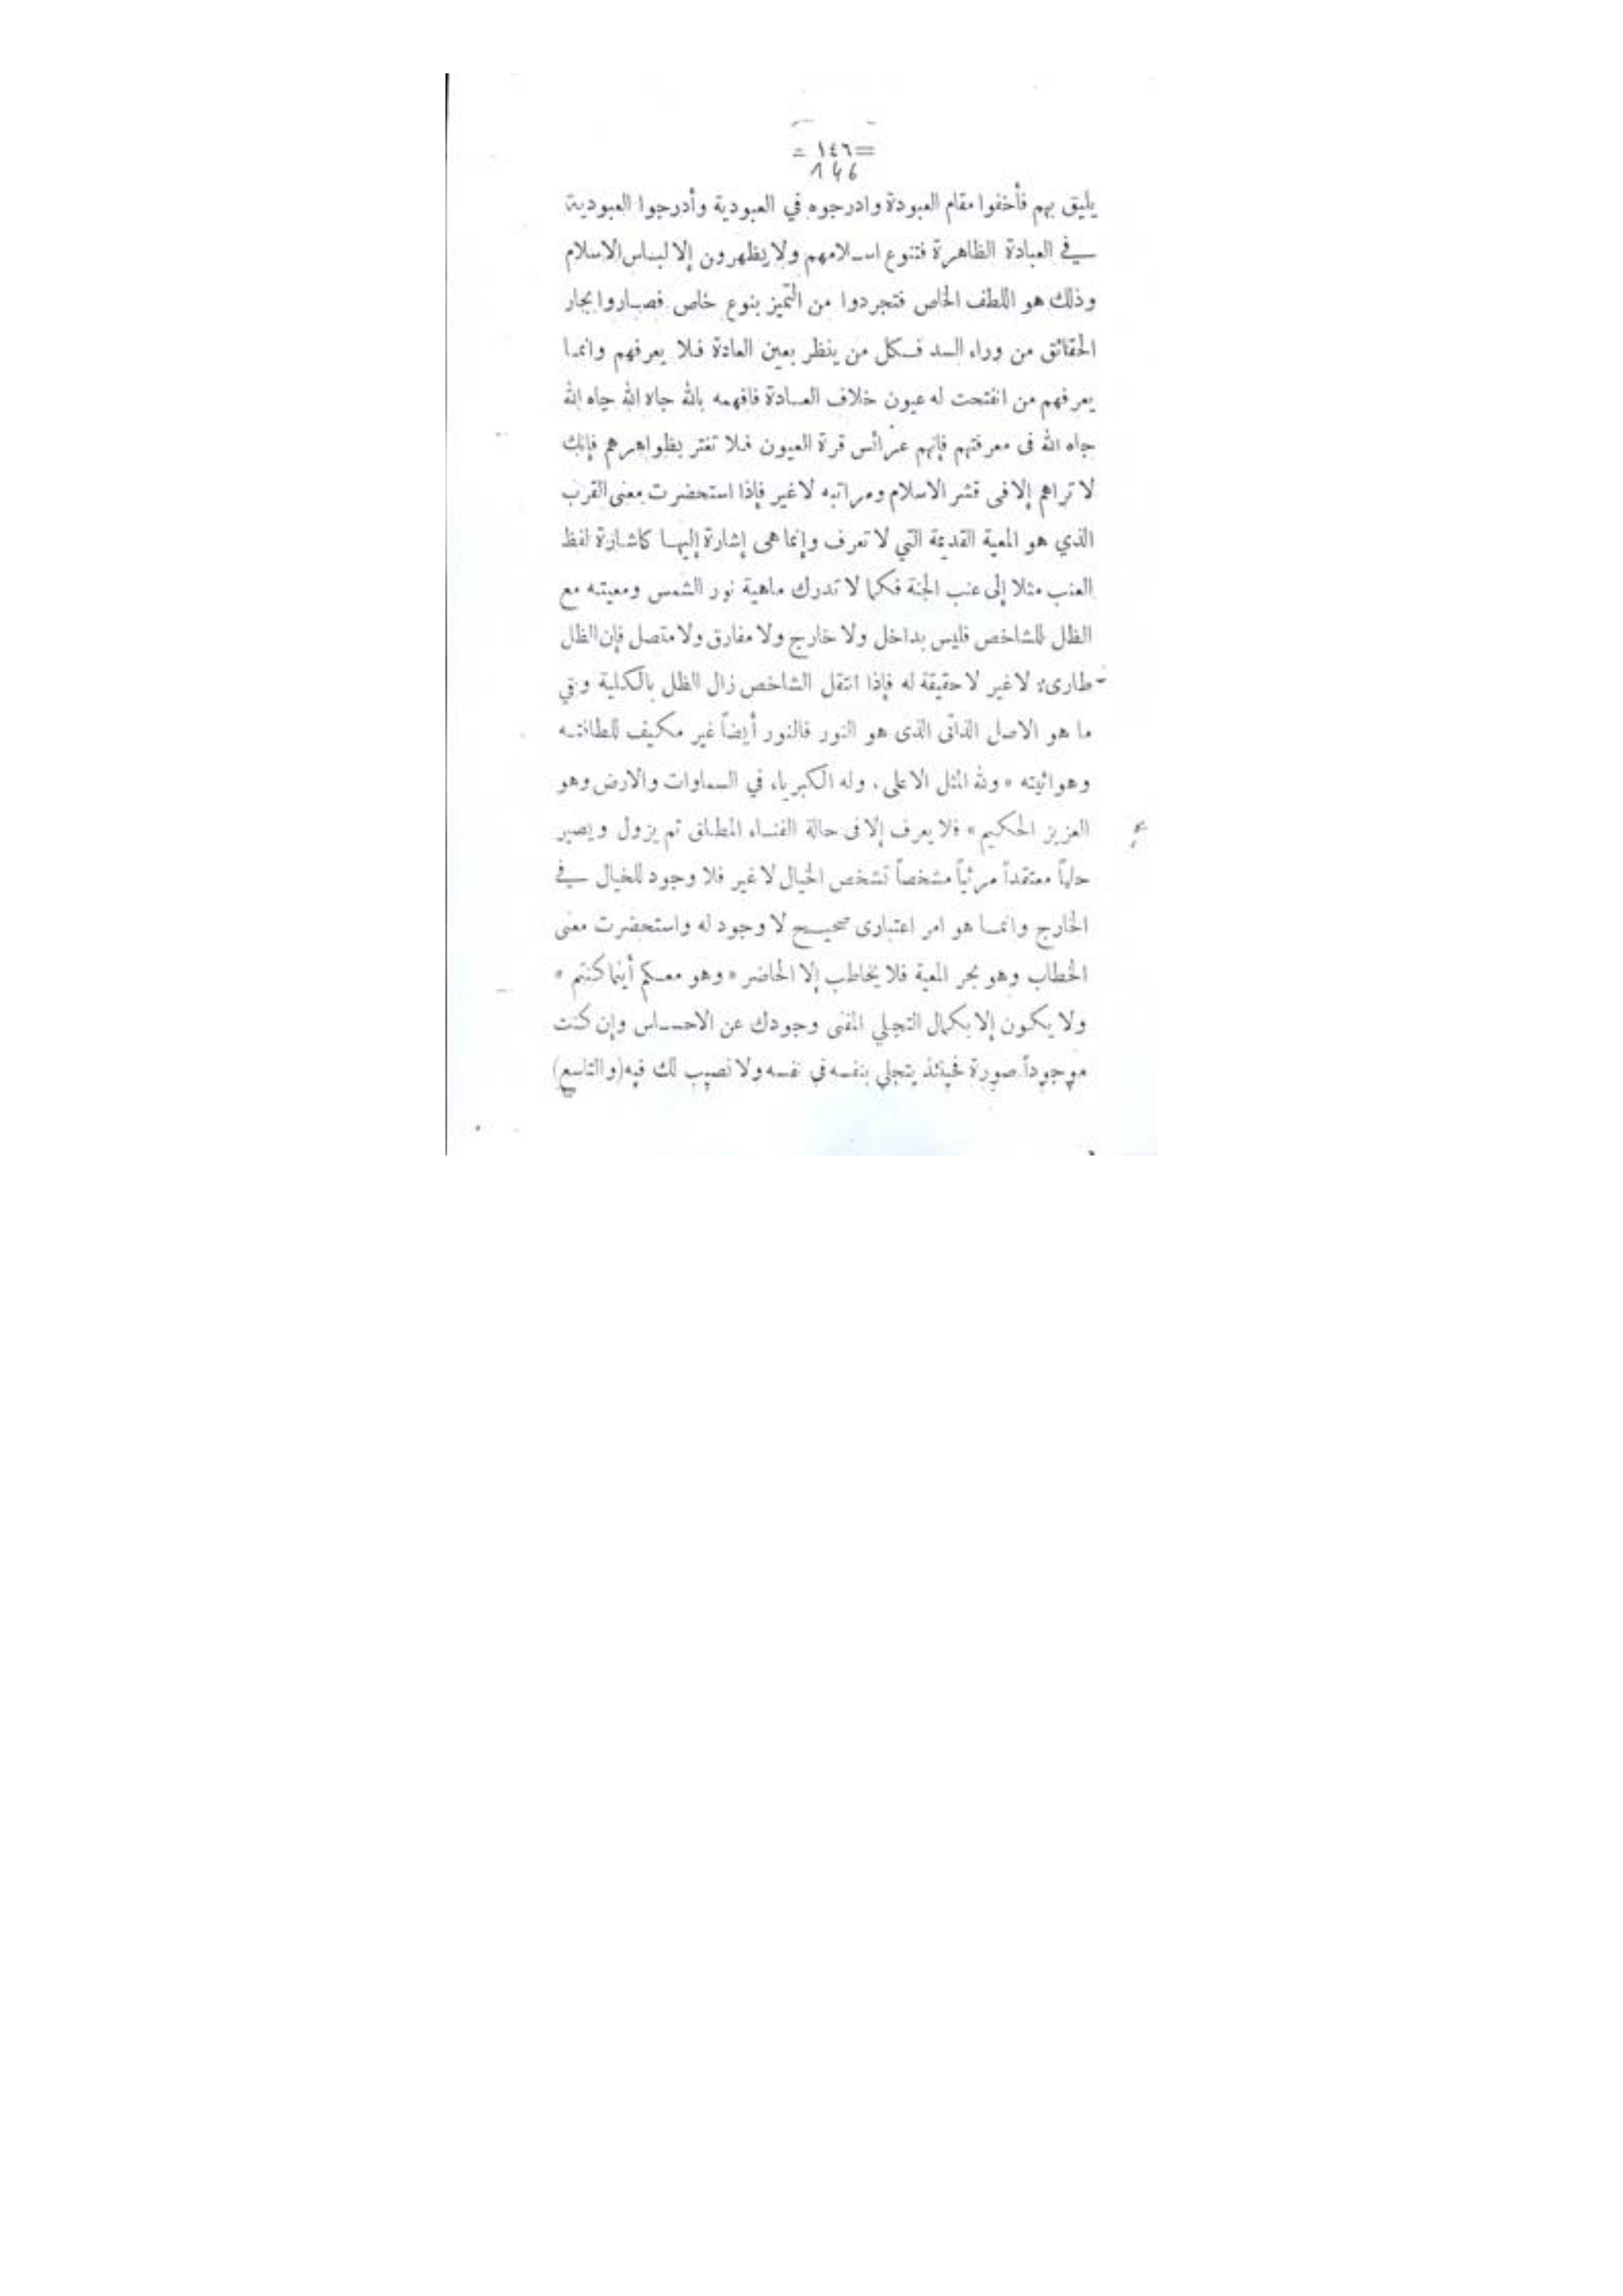 = ١٤٦ =
146
يليق بهم فأخفوا مقام العبودة وادرجوه في العبودية وأدرجوا العبودية
في العبادة الظاهرة فتنوع اسلامهم ولا يظهرون إلا لباس الاسلام
وذلك هو اللطف الخاص فتجردوا من التميز بنوع خاص فصاروا بحار
الحقائق من وراء السد فكل من ينظر بعين العادة فلا يعرفهم وانما
يعرفهم من انفتحت له عيون خلاف العادة فافهمه بالله جاه الله جاه الله
جاه الله فى معرفتهم فإنهم عرائس قرة العيون فلا تغتر بظواهرهم فإنك
لا تراهم إلا فى قشر الاسلام ومراتبه لا غير فإذا استحضرت معنى القرب
الذي هو المعية القديمة التي لا تعرف وإنما هى إشارة إليها كاشارة لفظ
العنب مثلا إلى عنب الجنة فكما لا تدرك ماهية نور الشمس ومعيته مع
الظل للشاخص فليس بداخل ولا خارج ولا مفارق ولا متصل فإن الظل
طارىء لا غير لا حقيقة له فإذا انتقل الشاخص زال الظل بالكلية وبقي
ما هو الاصل الذاتى الذى هو النور فالنور أيضاً غير مكيف للطافته
وهوائيته « ولله المثل الاعلى، وله الكبرياء في السماوات والارض وهو
العزيز الحكيم » فلا يعرف إلا فى حالة الفناء المطلق ثم يزول ويصير
معتقداً مرئياً مشخصاً تشخص الخيال لا غير فلا وجود للخيال في
الخارج وانما هو امر اعتبارى صحيح لا وجود له واستحضرت معنى
الخطاب وهو بحر المعية فلا يخاطب إلا الحاضر « وهو معكم أينما كنتم »
ولا يكون إلا بكمال التجلي المفنى وجودك عن الاحساس وإن كنت
موجوداً صورة فحينئذ يتجلي بنفسه في نفسه ولا نصيب لك فيه (والتاسع)